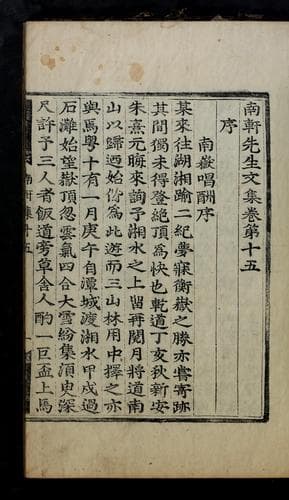 南軒先生文集卷第十五
序
南嶽唱酬序
某來往湖湘踰二紀夢寐衡嶽之勝亦嘗寄跡
其間獨未得登絶頂爲快也乾道丁亥秋新安
朱熹元晦來訪予湘水之上留再閱月將道南
山以歸迺始偕爲此遊而三山林用中擇之亦
與焉粤十有一月庚午自潭城渡湘水甲戌過
石灘始望嶽頂忽雲氣四合大雪紛集須臾深
尺許予三人者飯道旁草舍人酌一巨盃上馬
南軒集十五